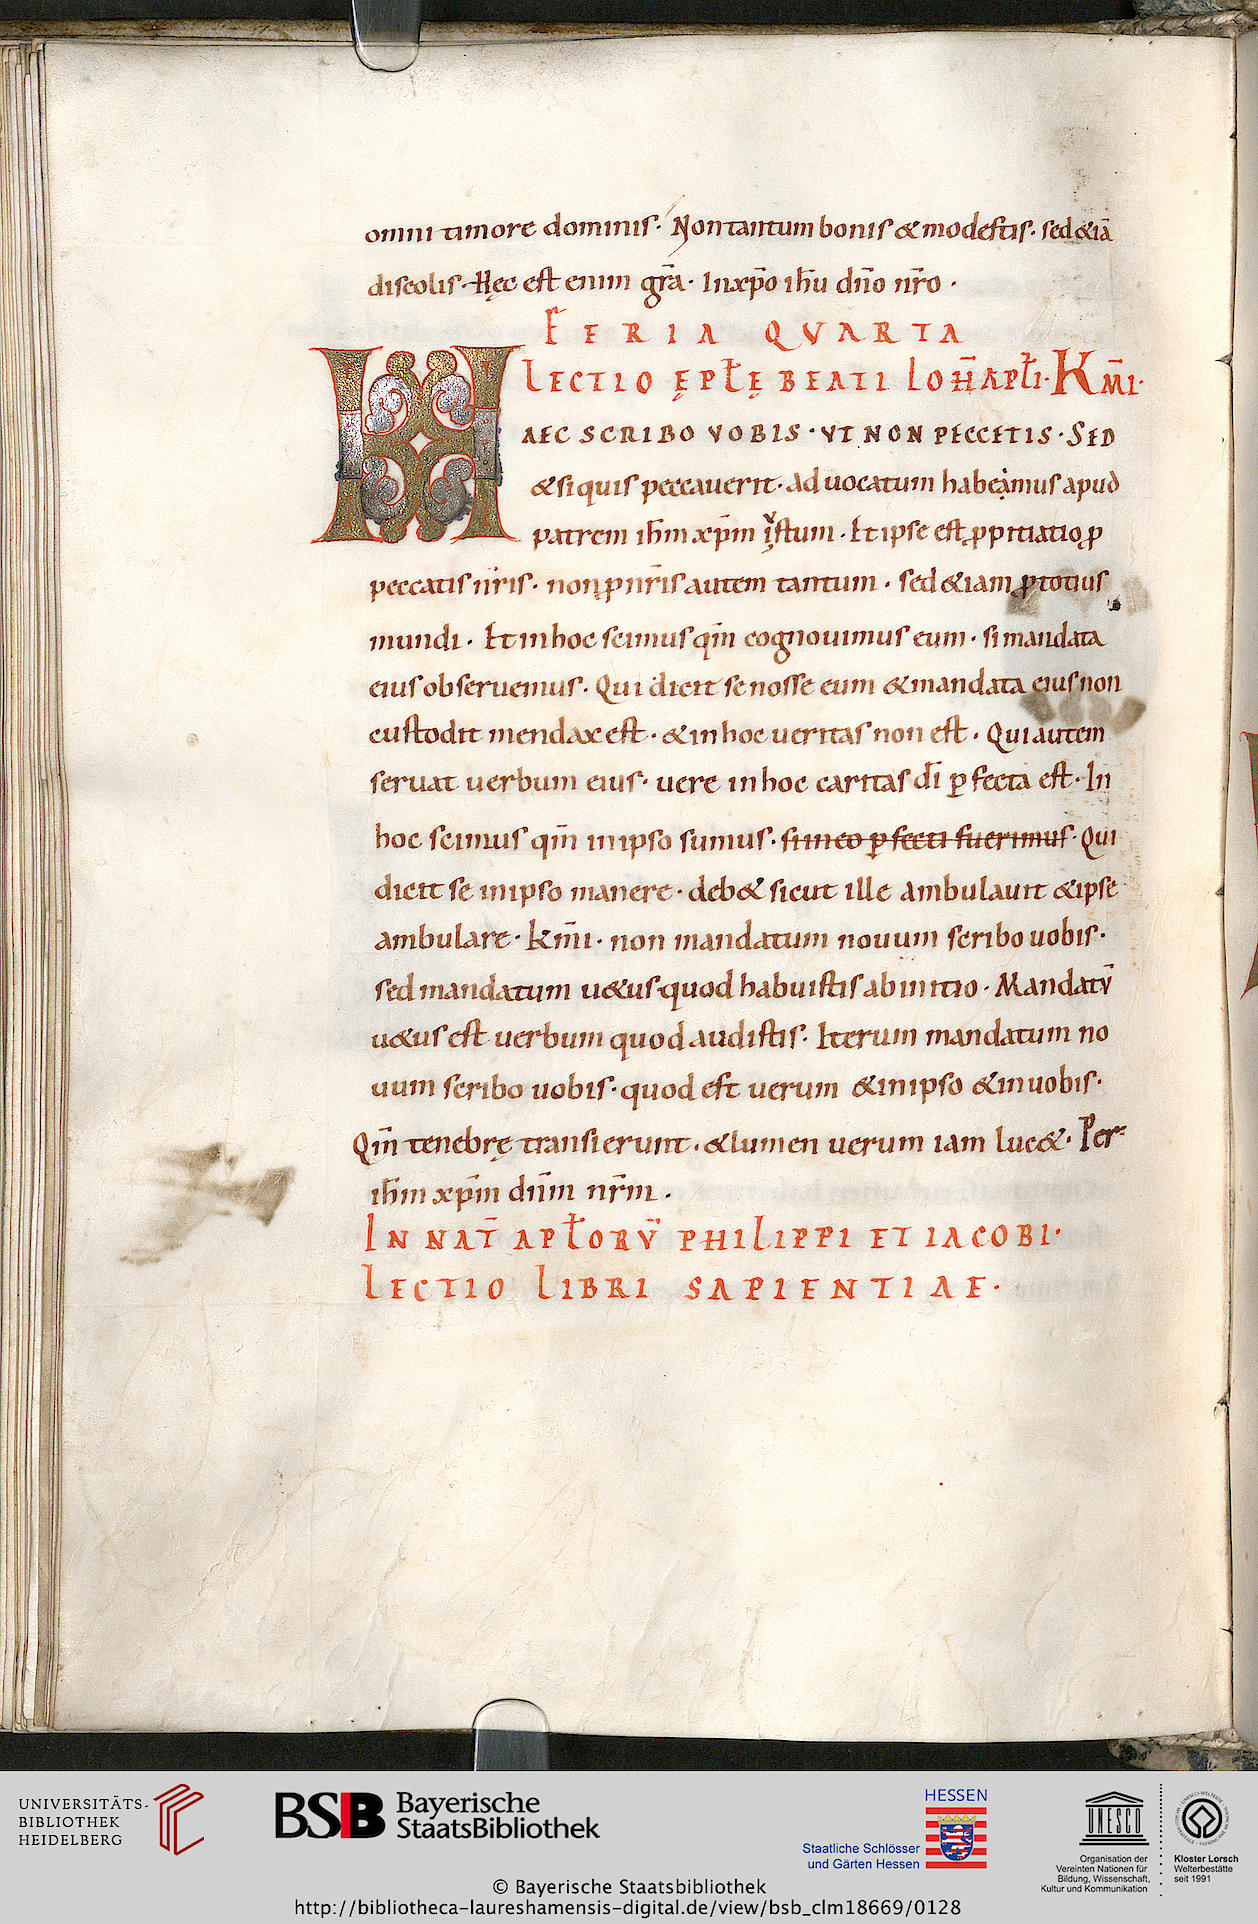 omni timore dominis· Non tantum bonis & modestis· sed &iā
discolis· Hęc est enim gr̄a· In xp̄o ih̄u dn̄o nr̄o·
FERIA QVARTA
LECTIO ĘPƚĘ BEATI IOH̄ APƚI· Km̄i·
HAEC SCRIBO VOBIS· VT NON PECCETIS· SED
& si quis peccauerit· aduocatum habeamus apud
patrem ih̄m xp̄m iustum· Et ipse est ꝓpitiatio ꝓ
peccatis nr̄is· non ꝓ nr̄is autem tantum· sed &iam ꝓ totius
mundi· Et in hoc scimus qm̄ cognouimus eum· si mandata
eius obseruemus· Qui dicit se nosse eum & mandata eius non
custodit mendax est· & in hoc ueritas non est· Qui autem
seruat uerbum eius· uere in hoc caritas dī ꝑfecta est· In
hoc scimus qm̄ in ipso sumus· si in eo ꝑfecti fuerimus· Qui
dicit se in ipso manere· deb& sicut ille ambulauit & ipse
ambulare· Km̄i· non mandatum nouum scribo uobis·
sed mandatum u&us quod habuistis ab initio· Mandatū
u&us est uerbum quod audistis· Iterum mandatum no
uum scribo uobis· quod est uerum & in ipso & in uobis·
Qm̄ tenebrę transierunt· & lumen uerum iam luc&· Per
ih̄m xp̄m dn̄m nr̄m·
IN NAT̄ APƚORV̄ PHILIPPI ET IACOBI·
LECTIO LIBRI SAPIENTIAE·
UNIVERSITÄTS-
BIBLIOTHEK
HEIDELBERG
BSB Bayerische
StaatsBibliothek
HESSEN
Staatliche Schlösser
und Gärten Hessen
UNESCO
Organisation der
Vereinten Nationen für
Bildung, Wissenschaft,
Kultur und Kommunikation
Kloster Lorsch
Welterbestätte
seit 1991
© Bayerische Staatsbibliothek
http://bibliotheca-laureshamensis-digital.de/view/bsb_clm18669/0128